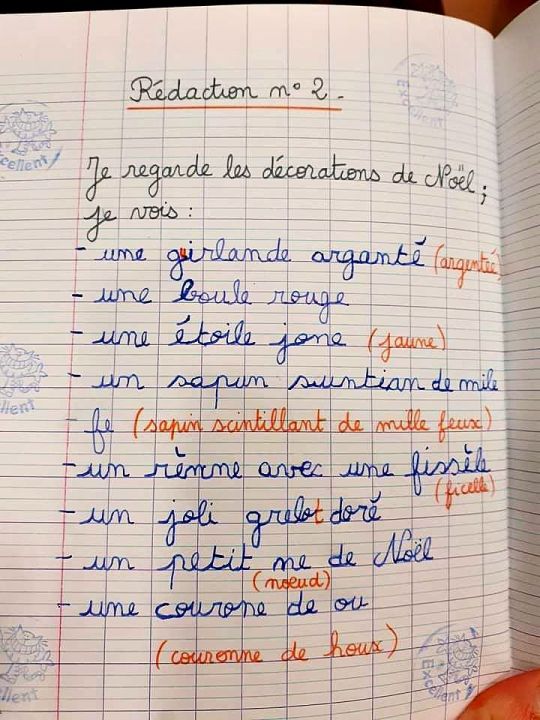 Rédaction n° 2.
Je regarde les décorations de Noël;
je vois :
- une guirlande arganté (argenteé)
- une boule rouge
- une étoile jone (jaune)
- un sapun suntian de mile
- fe (sapin scintillant de mille feux)
- un rènne avec une fissèle
(ficelle)
- un joli grelot doré
- un petit ne de Noël
(noeud)
- une courone de ou
(couronne de houx)
Excellent
Excellent
Excellent
Excellent
Excellent